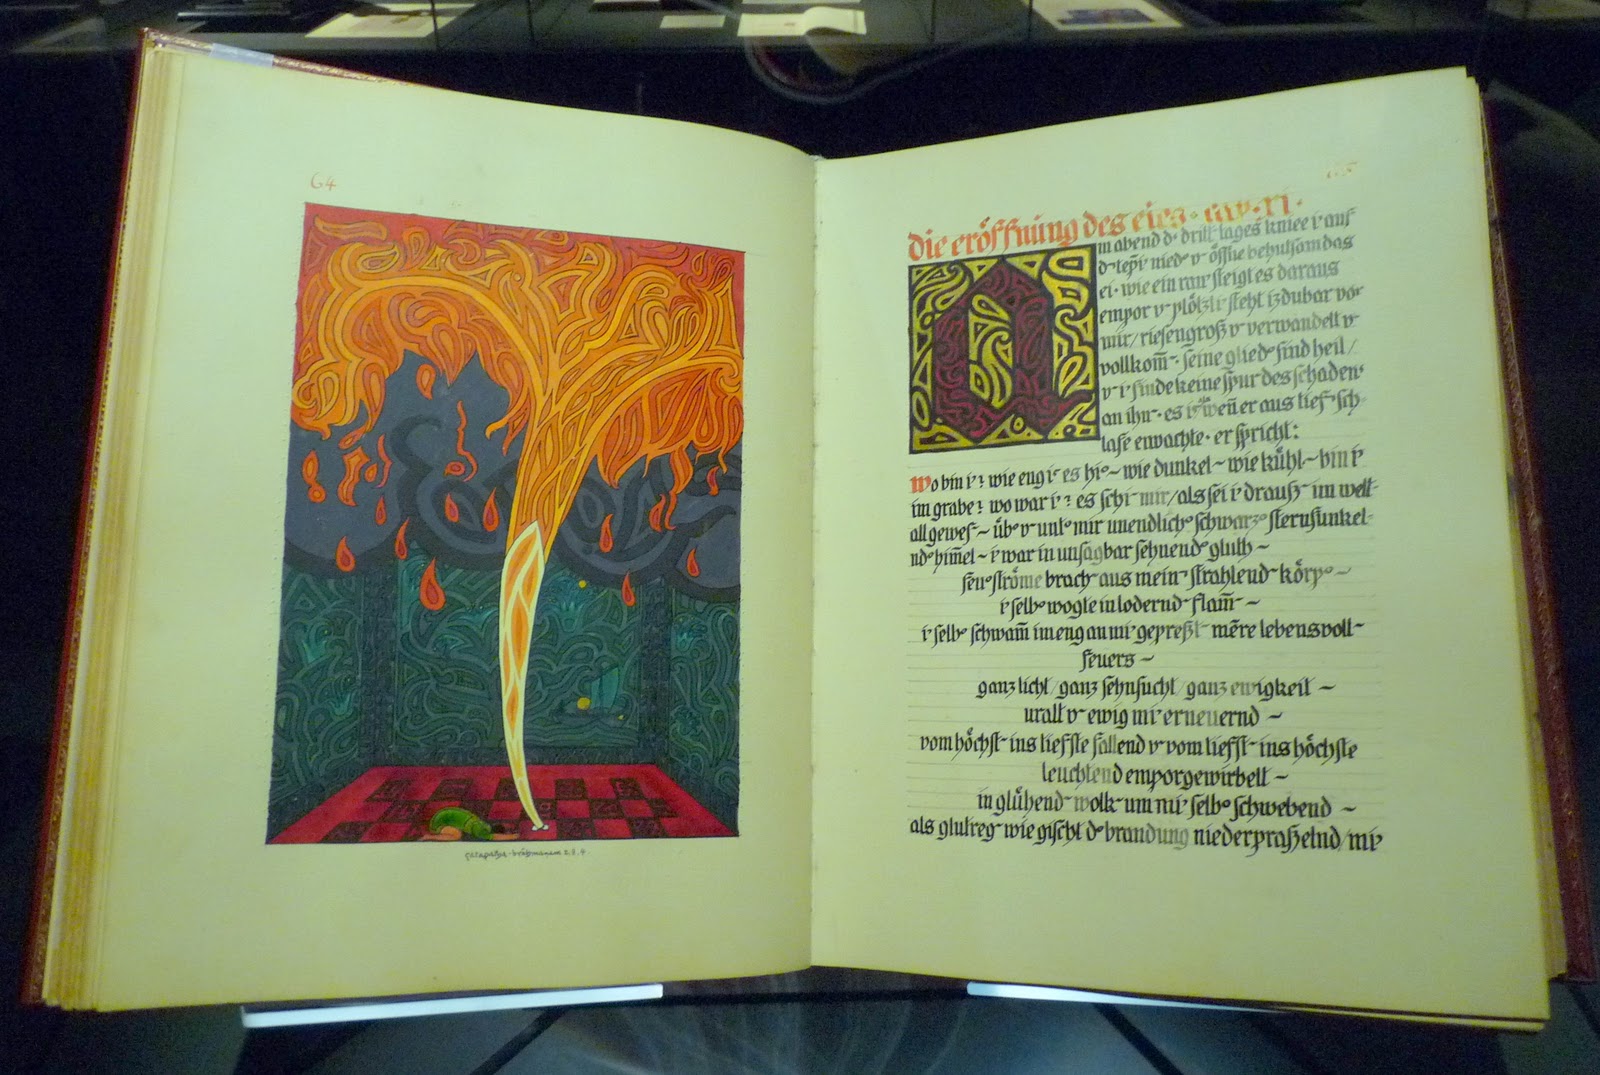 64
die eröffnung des eies. cap. xi.
m abend d. dritt tages knee i auf
d teppi nied v öffne behutsam das
ei. wie ein rauc steigt es daraus
empor v plötzli steht izdubar vor
mir/ riesengroß v verwandelt v
vollkom̄. seine glied sind heil/
v i finde keine spur des schadens
an ihn. es i wen̄ er aus tief sch-
lafe erwachte. er spricht:
wo bin i? wie eng i es hi ~ wie dunkel ~ wie kühl ~ bin i
im grabe? wo war i? es schi mir/ als sei i drauß im welt
all gewes ~ üb v unt mir unendlich schwarz sternfunkel-
nd him̄el ~ i war in unsagbar sehnend gluth ~
feu ströme brach aus mein strahlend körp ~
i selb wogte in lodernd flam̄ ~
i selb schwam̄ im eng an mi gepreßt meere lebensvoll
feuers ~
ganz licht/ ganz sehnsucht/ ganz ewigkeit ~
uralt v ewig mi erneuernd ~
vom höchst ins tiefste fallend v vom tiefst ins höchste
leuchtend emporgewirbelt ~
in glühend wolk um mi selb schwebend ~
als glutreg wie gischt d brandung niederpraßelnd/ mi